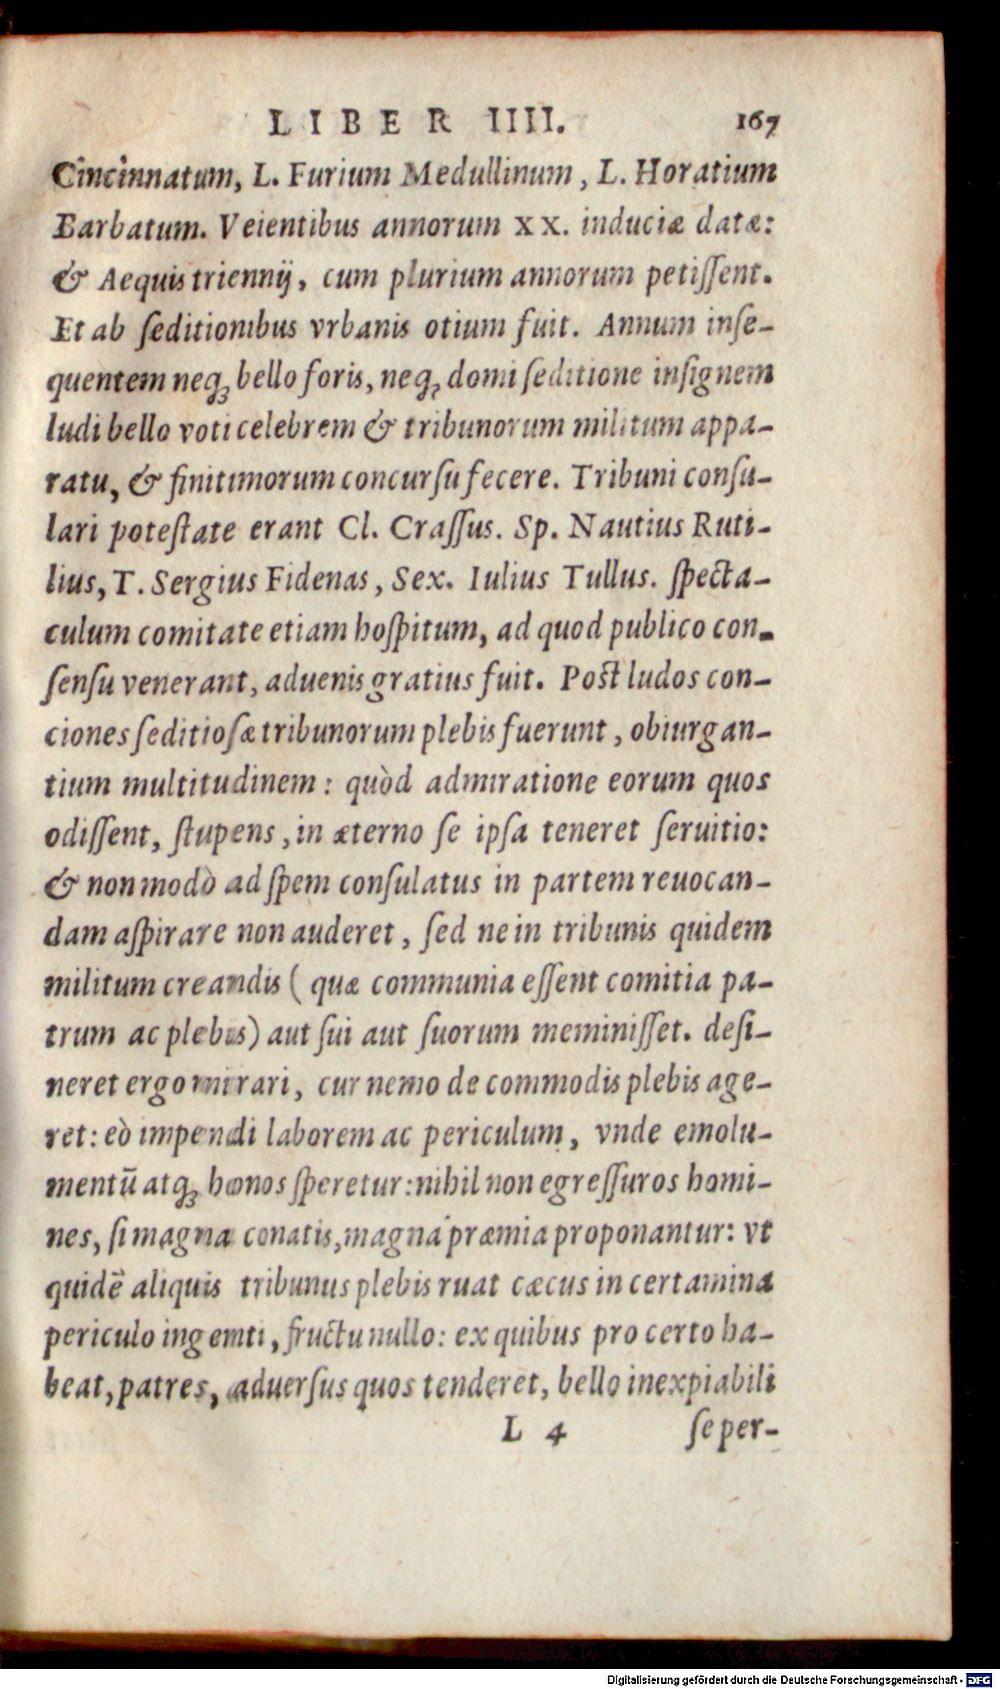 LIBER IIII. 167
Cincinnatum, L. Furium Medullinum, L. Horatium
Barbatum. Veientibus annorum XX. induciæ datæ:
& Aequis triennij, cum plurium annorum petiſſent.
Et ab ſeditionibus vrbanis otium fuit. Annum inſe-
quentem neq; bello foris, neq; domi ſeditione inſignem
ludi bello voti celebrem & tribunorum militum appa-
ratu, & finitimorum concurſu fecere. Tribuni conſu-
lari poteſtate erant Cl. Craſſus. Sp. Nautius Ruti-
lius, T. Sergius Fidenas, Sex. Iulius Tullus. ſpecta-
culum comitate etiam hoſpitum, ad quod publico con-
ſenſu venerant, aduenis gratius fuit. Poſt ludos con-
ciones ſeditioſæ tribunorum plebis fuerunt, obiurgan-
tium multitudinem: quòd admiratione eorum quos
odiſſent, ſtupens, in æterno ſe ipſa teneret ſeruitio:
& non modò ad ſpem conſulatus in partem reuocan-
dam aſpirare non auderet, ſed ne in tribunis quidem
militum creandis (quæ communia eſſent comitia pa-
trum ac plebis) aut ſui aut ſuorum meminiſſet. deſi-
neret ergo mirari, cur nemo de commodis plebis age-
ret: eò impendi laborem ac periculum, vnde emolu-
mentū atq; honos ſperetur: nihil non egreſſuros homi-
nes, ſi magna conatis, magna præmia proponantur: vt
quidē aliquis tribunus plebis ruat cæcus in certamina
periculo ingenti, fructu nullo: ex quibus pro certo ha-
beat, patres, aduerſus quos tenderet, bello inexpiabili
L 4 ſe per-
Digitalisierung gefördert durch die Deutsche Forschungsgemeinschaft - DFG